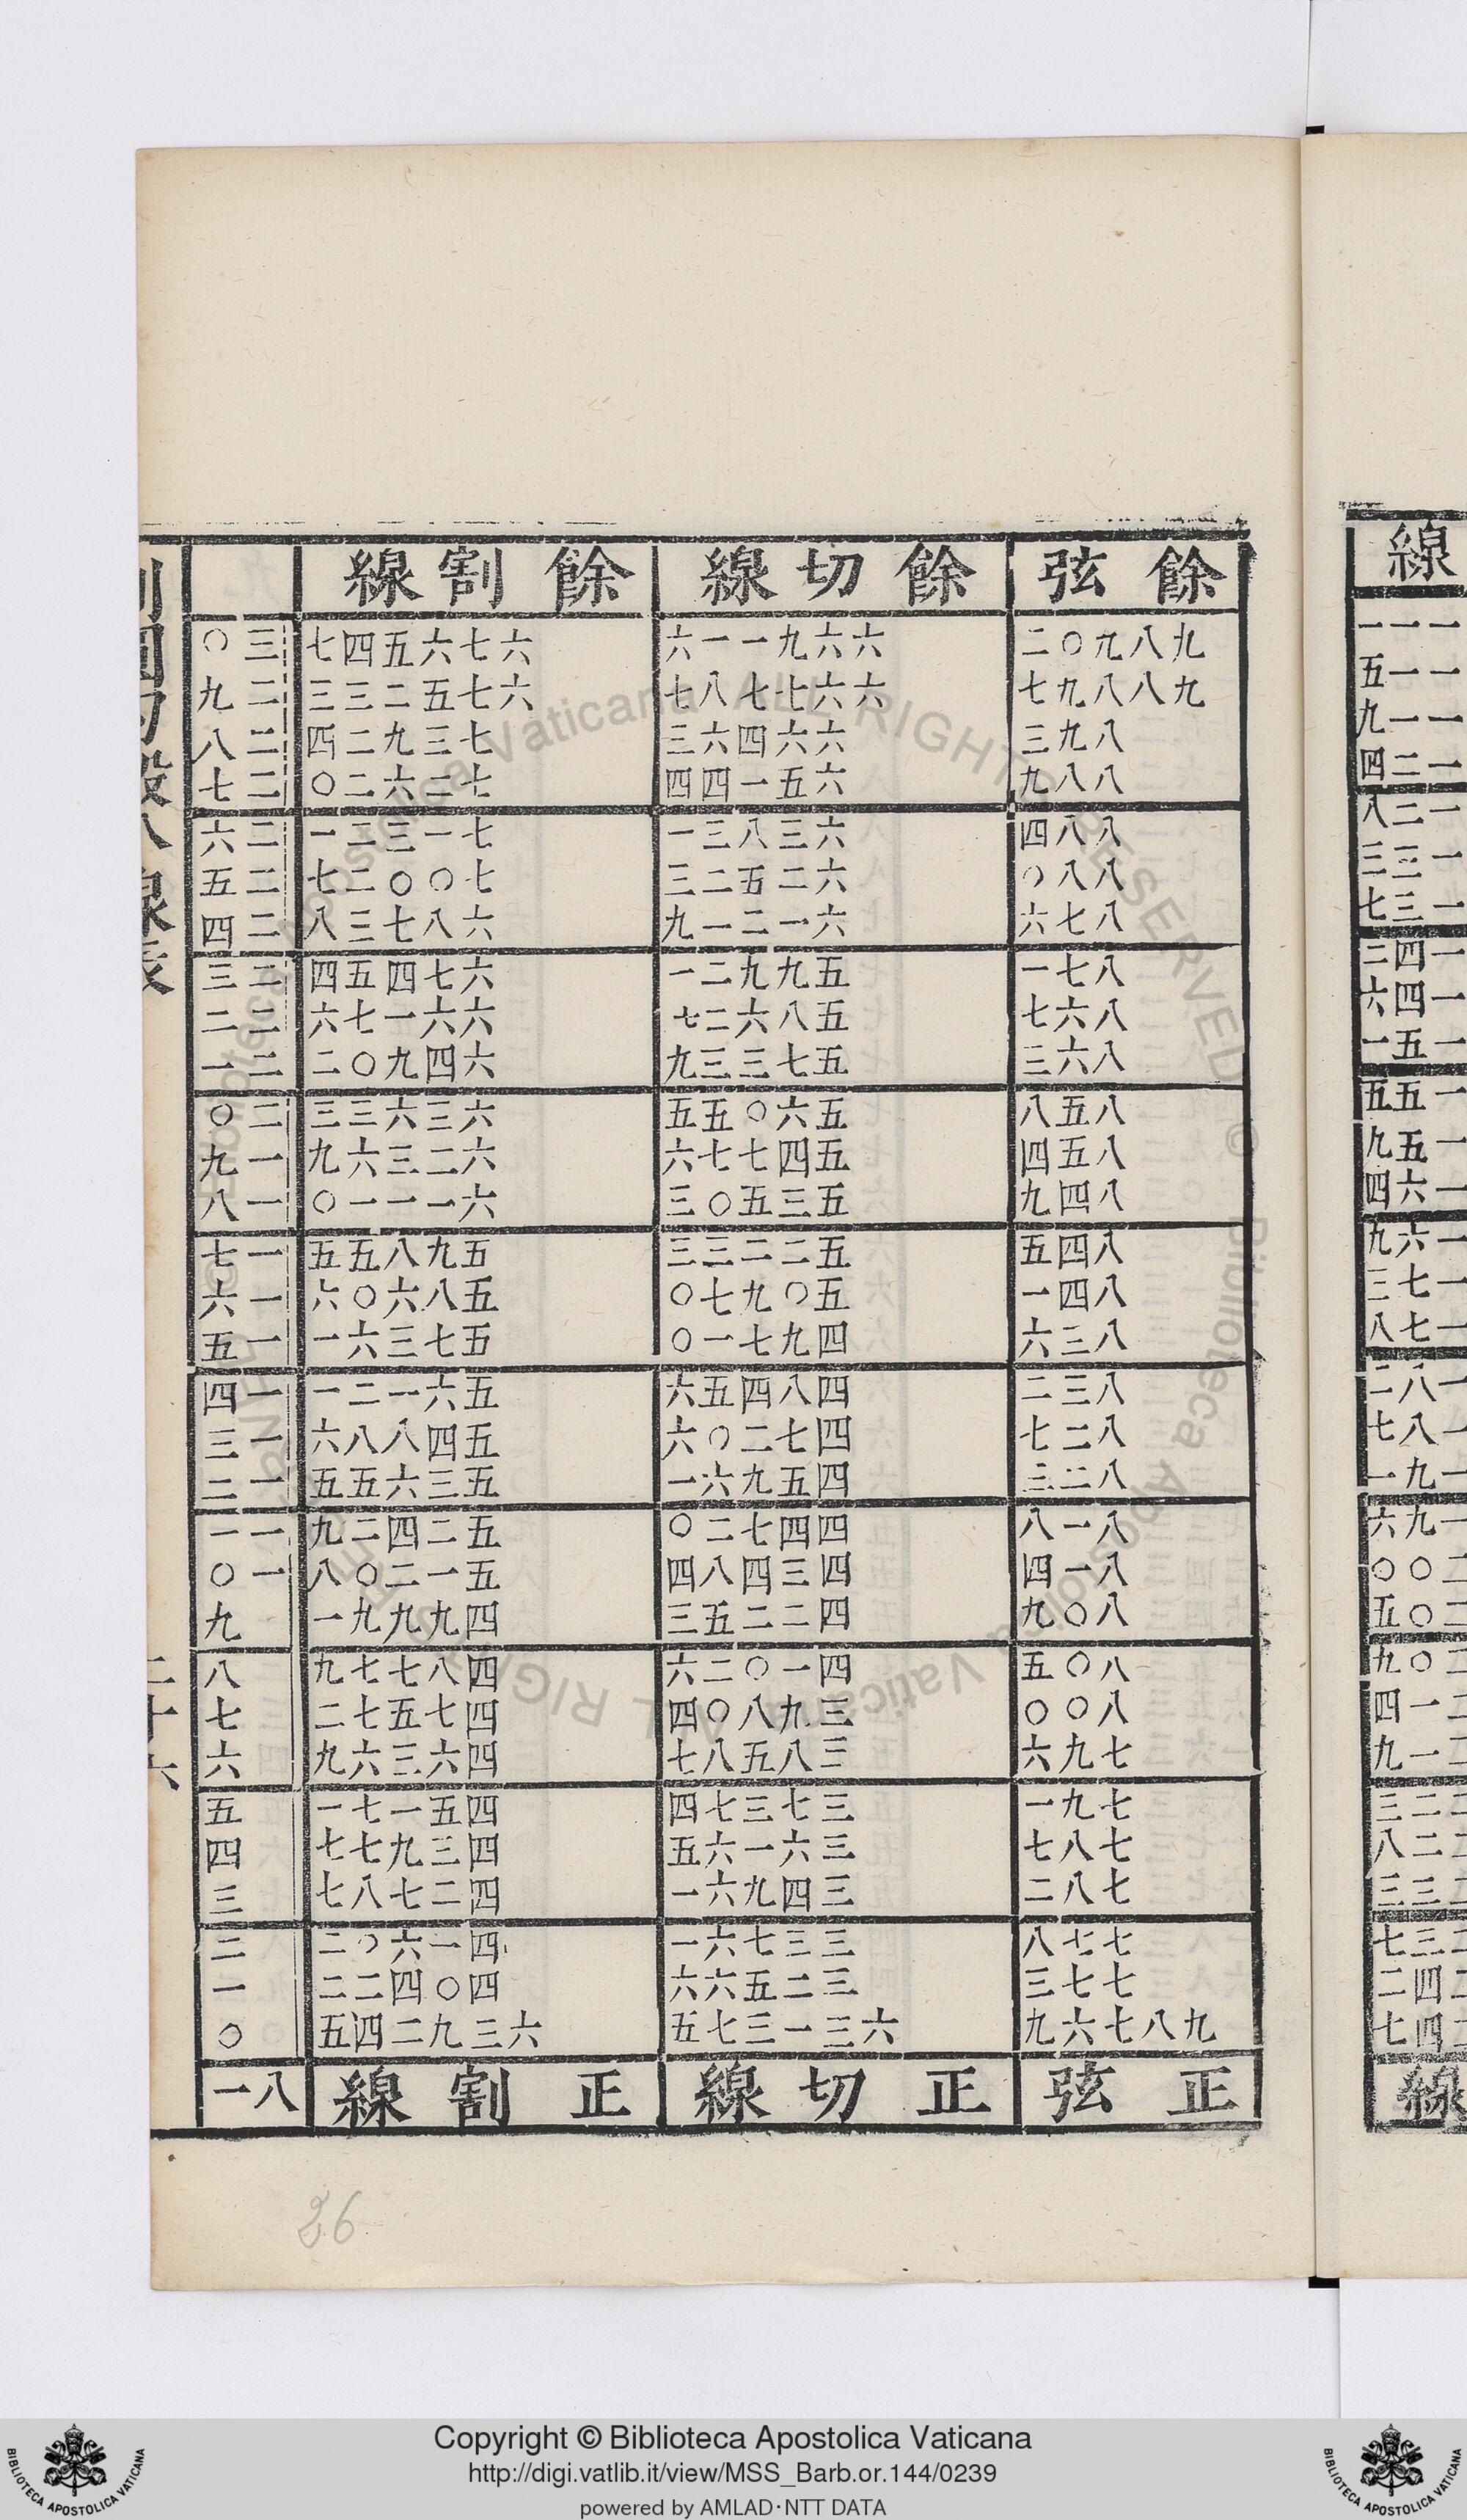 線
一一一
一一五
一一九
一二四
一二八
一三三
一三七
一四二
一四六
一五一
一五五
一五九
一六四
一六九
一七三
一七八
一八二
一八七
一九一
一九六
二〇〇
二〇五
二〇九
二一四
二一九
二二三
二二八
二三三
二三七
二四二
二四七
線
餘弦 餘切線 餘割線
九八九〇二 六六九一一六 六七六五四七 三〇
九八八九七 六六七七八七 六七五二三三 二九
八九三 六六四六三 七三九二四 二八
八八九 六五一四四 七二六二〇 二七
八八四 六三八三一 七一三二一 二六
八八〇 六二五二三 七〇〇二七 二五
八七六 六一二一九 六八七三八 二四
八七一 五九九二一 六七四五四 二三
八六七 五八六二七 六六一七六 二二
八六三 五七三三九 六四九〇二 二一
八五八 五六〇五五 六三六三三 二〇
八五四 五四七七六 六二三六九 一九
八四九 五三五〇三 六一一一〇 一八
八四五 五二二三三 五九八五五 一七
八四一 五〇九七〇 五八六〇六 一六
八三六 四九七一〇 五七三六一 一五
八三二 四八四五六 五六一二一 一四
八二七 四七二〇六 五四八八六 一三
八二三 四五九六一 五三六五五 一二
八一八 四四七二〇 五二四二九 一一
八一四 四三四八四 五一二〇八 一〇
八〇九 四二二五三 四九九九一 九
八〇五 四一〇二六 四八七七九 八
八〇〇 三九八〇四 四七五七二 七
七九六 三八五八七 四六三六九 六
七九一 三七三七四 四五一七一 五
七八七 三六一六五 四三九七七 四
七八二 三四九六一 四二七八七 三
七七八 三三七六一 四一六〇二 二
七七三 三二五六六 四〇四二二 一
九八七六九 六三一三七五 六三九二四五 〇
正弦 正切線 正割線 八一
26
Copyright © Biblioteca Apostolica Vaticana
http://digi.vatlib.it/view/MSS_Barb.or.144/0239
powered by AMLAD·NTT DATA